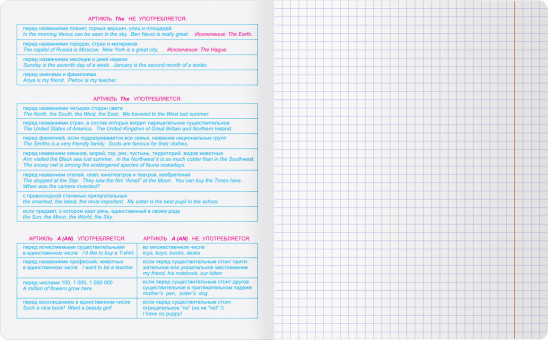 АРТИКЛЬ The НЕ УПОТРЕБЛЯЕТСЯ:
перед названиями планет, горных вершин, улиц и площадей
In the morning Venus can be seen in the sky. Ben Nevis is really great. Исключение: The Earth.
перед названиями городов, стран и материков
The capital of Russia is Moscow. New York is a great city. Исключение: The Hague.
перед названиями месяцев и дней недели
Sunday is the seventh day of a week. January is the second month of a winter.
перед именами и фамилиями
Anya is my friend. Petrov is my teacher.
АРТИКЛЬ The УПОТРЕБЛЯЕТСЯ:
перед названиями четырех сторон света
The North, the South, the West, the East. We traveled to the West last summer.
перед названиями стран, в состав которых входит нарицательное существительное
The United States of America. The United Kingdom of Great Britain and Northern Ireland.
перед фамилией, если подразумевается вся семья, названия национальных групп
The Smiths is a very friendly family. Scots are famous for their clothes.
перед названием океанов, морей, гор, рек, пустынь, территорий, видов животных
Ann visited the Black sea last summer. In the Northwest it is so much colder than in the Southwest.
The snowy owl is among the endangered species of fauna nowadays.
перед названием отелей, газет, кинотеатров и театров, изобретений
The stopped at the Star. They saw the film "Ameli" at the Moon. You can buy the Times here.
When was the camera invented?
с превосходной степенью прилагательных
the smartest, the latest, the most important. My sister is the best pupil in the school.
если предмет, о котором идет речь, единственный в своем роде
the Sun, the Moon, the World, the Sky.
АРТИКЛЬ A (AN) УПОТРЕБЛЯЕТСЯ:
перед исчисляемыми существительными
в единственном числе I'd like to buy a T-shirt.
перед названиями профессий, животных
в единственном числе I want to be a teacher.
перед числами 100, 1 000, 1 000 000
A million of flowers grow here.
перед восклицанием в единственном числе
Such a nice book! Want a beauty girl!
АРТИКЛЬ A (AN) НЕ УПОТРЕБЛЯЕТСЯ:
во множественном числе
toys, boys, books, disks
если перед существительным стоит притя-
жательное или указательное местоимение
my friend, his notebook, our kitten
если перед существительным стоит другое
существительное в притяжательном падеже
mother's pen, sister's dog
если перед существительным стоит
отрицательное "no" (но не "not" !)
I have no puppy!